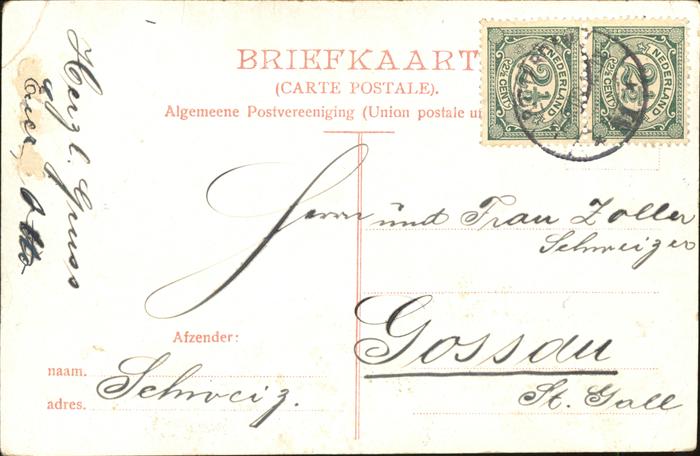 BRIEFKAART
(CARTE POSTALE).
Algemeene Postvereeniging (Union postale
NEDERLAND
2½ CENT
NEDERLAND
2½ CENT
Herzl. Gruss
Euer Otto
Herrn und Frau Zoller
Schweizer
Gossau
St. Gall
Afzender:
naam.
adres.
Schweiz.